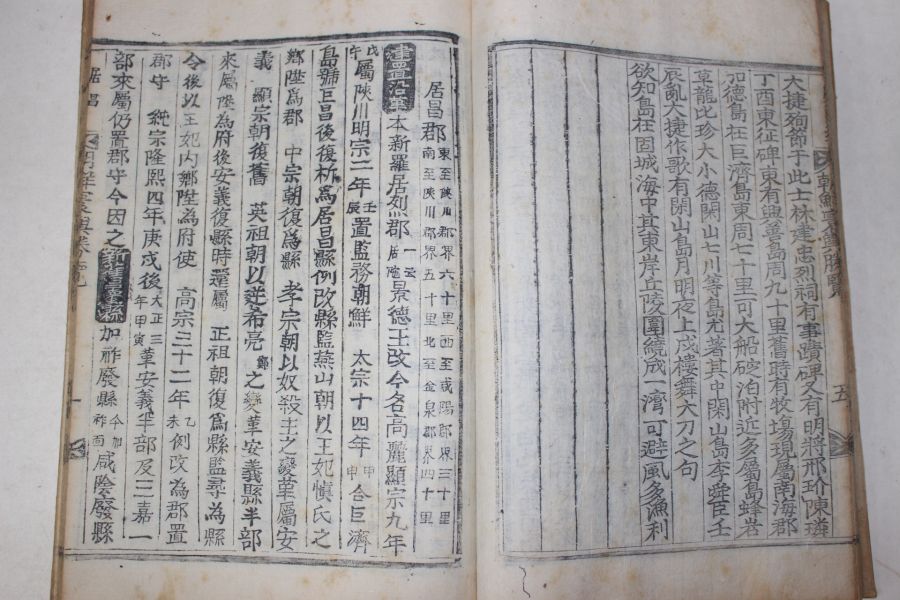 大捷殉節于此士林建忠烈祠有事蹟碑又有明將邢玠陳璘
丁酉東征碑東有興善島周九十里舊時有牧場現屬南海郡
加德島在巨濟島東周七十里可大船碇泊附近多屬島蜂岩
草龍比珍大小德閑山七川等島尤著其中閑山島李舜臣壬
辰亂大捷作歌有閑山島月明夜上戍樓舞大刀之句
欲知島在固城海中其東岸丘陵圍繞成一灣可避風多漁利
五
居昌郡 東至陜川郡界六十里西至咸陽郡界三十里
南至陜川郡界五十里北至金泉郡界四十里
建置沿革 本新羅居烈郡 一云居陁 景德王改今名高麗顯宗九年
戊午 屬陜川明宗二年 壬辰 置監務朝鮮 太宗十四年 甲申 合巨濟
島號巨昌後復析爲居昌縣例改縣監燕山朝以王妃愼氏之
鄕陞爲郡 中宗朝復爲縣 孝宗朝以奴殺主之變革屬安
義 顯宗朝復舊 英祖朝以逆希亮 鄭 之變革安義縣半部
來屬陞爲府後安義復縣時還屬 正祖朝復爲縣監尋爲縣
令後以王妃內鄕陞爲府使 高宗三十二年 乙未 例改為郡置
郡守 純宗隆熙四年庚戌後 大正三年甲寅 革安義半部及三嘉一
部來屬仍置郡守今因之 新舊屬縣 加祚廢縣 今加祚面 咸陰廢縣
居昌
一